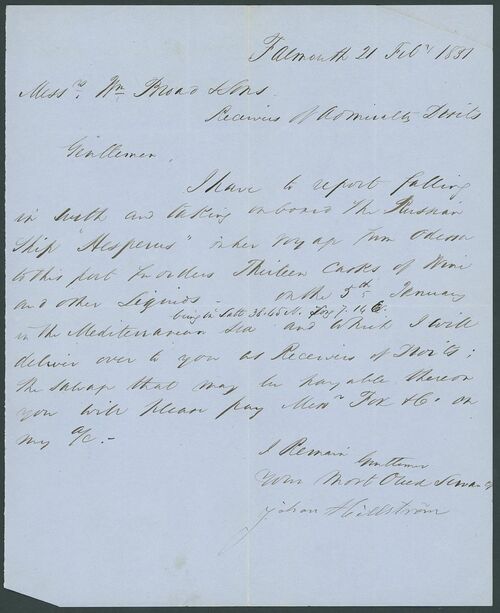 Falmouth 21 Feby 1851
Messrs. Wm Broad & Sons
Receivers of Admiralty Droits
Gentlemen,
I have to report falling
in with and taking onboard the Russian
Ship "Hesperus" in her voyage from Odessa
to this port for orders Thirteen Casks of Wine
and other Liquids - on the 5th January
being in Latt 38.45 N. Long 7.14 E.
in the Mediterranean Sea and which I will
deliver over to you as Receivers of Droits;
the Salvage that may be payable thereon
you will please pay Messrs Fox & Co on
my a/c. -
I Remain
Gentlemen
Your Most Obed Servant
Johan Hillström